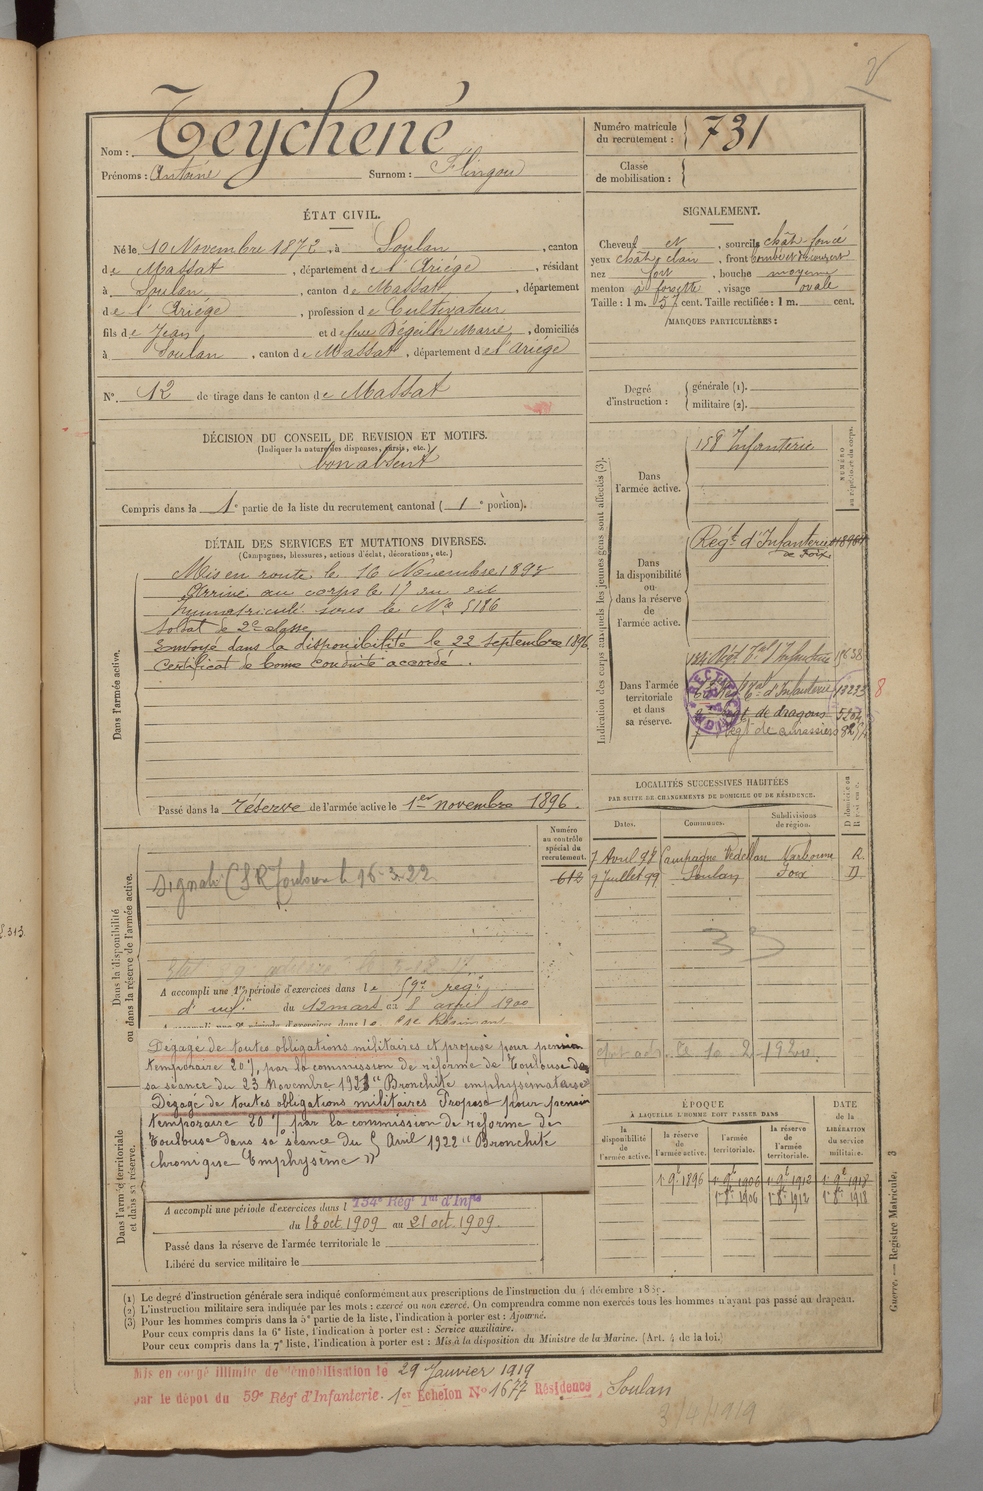 Teychené
Nom :
Prénoms : Antoine Surnom : Flingou
Numéro matricule du recrutement : 731
Classe de mobilisation :
ÉTAT CIVIL.
Né le 10 Novembre 1872, à Soulan, canton
de Massat, département de l'Ariége, résidant
à Soulan, canton de Massat, département
de l'Ariége, profession de Cultivateur
fils de Jean et de feue Dégeilh Marie, domiciliés
à Soulan, canton de Massat, département de l'Ariége
N° 12 de tirage dans le canton de Massat
SIGNALEMENT.
Cheveux et, sourcils chât. foncé
yeux chât. clair, front
nez fort, bouche moyenne
menton à fossette, visage ovale
Taille : 1 m. 57 cent. Taille rectifiée : 1 m. cent.
MARQUES PARTICULIÈRES :
Degré d'instruction : générale (1).
militaire (2).
DÉCISION DU CONSEIL DE REVISION ET MOTIFS.
(Indiquer la nature des dispenses, sursis, etc.)
bon absent
Compris dans la 1e partie de la liste du recrutement cantonal (1e portion).
DÉTAIL DES SERVICES ET MUTATIONS DIVERSES.
(Campagnes, blessures, actions d'éclat, décorations, etc.)
Dans l'armée active.
Mis en route le 16 Novembre 1893
Arrivé au corps le 17 du dit
Immatriculé sous le No 5186
Soldat de 2e classe
Envoyé dans la disponibilité le 22 septembre 1896
Certificat de bonne conduite accordé.
Passé dans la réserve de l'armée active le 1er novembre 1896.
Indication des corps auxquels les jeunes gens sont affectés (3).
NUMÉRO au répertoire du corps.
Dans l'armée active.
158 Infanterie
Dans la disponibilité ou dans la réserve de l'armée active.
Régt d'Infanterie
de Foix
Dans l'armée territoriale et dans sa réserve.
Régt Tal d'Infanterie
Tal d'Infanterie
Régt de dragons
Régt de cuirassiers
8
LOCALITÉS SUCCESSIVES HABITÉES
PAR SUITE DE CHANGEMENTS DE DOMICILE OU DE RÉSIDENCE.
Dates. Communes. Subdivisions de région. D domicile ou R résidence.
7 Avril 98 Campagne Védeillan Narbonne R.
9 Juillet 99 Soulan Foix D.
33
le 10-2-1920
Dans la disponibilité ou dans la réserve de l'armée active.
Numéro au contrôle spécial du recrutement.
612
Signalé CSR Toulouse le 96-3-22
A accompli une 1re période d'exercices dans le 59e régt
d'inf. du 12 mars au 8 avril 1900
Dégagé de toutes obligations militaires et proposé pour pension
temporaire 20% par la commission de réforme de Toulouse dans
sa séance du 23 Novembre 1921 "Bronchite emphysémateuse"
Dégagé de toutes obligations militaires Proposé pour pension
temporaire 20% par la commission de réforme de
Toulouse dans sa séance du 5 Avril 1922 "Bronchite
chronique Emphysème"
Dans l'armée territoriale et dans sa réserve.
A accompli une période d'exercices dans l 134e Régt Tal d'Infie
du 13 oct. 1909 au 21 oct. 1909.
Passé dans la réserve de l'armée territoriale le
Libéré du service militaire le
ÉPOQUE
À LAQUELLE L'HOMME DOIT PASSER DANS
DATE de la LIBÉRATION du service militaire.
la disponibilité de l'armée active. la réserve de l'armée active. l'armée territoriale. la réserve de l'armée territoriale.
1r 9e 1896 1r 9e 1906 1r 9e 1912 1r 9e 1918
1r 8e 1906 1r 8e 1912 1r 8e 1918
Guerre. — Registre Matricule. 3
(1) Le degré d'instruction générale sera indiqué conformément aux prescriptions de l'instruction du 4 décembre 1889.
(2) L'instruction militaire sera indiquée par les mots : exercé ou non exercé. On comprendra comme non exercés tous les hommes n'ayant pas passé au drapeau.
(3) Pour les hommes compris dans la 5e partie de la liste, l'indication à porter est : Ajourné.
Pour ceux compris dans la 6e liste, l'indication à porter est : Service auxiliaire.
Pour ceux compris dans la 7e liste, l'indication à porter est : Mis à la disposition du Ministre de la Marine. (Art. 4 de la loi.)
Mis en congé illimité de démobilisation le 29 Janvier 1919
par le dépôt du 59e Régt d'Infanterie. 1er Echelon No 1677 Résidence, Soulan
3/4/1919